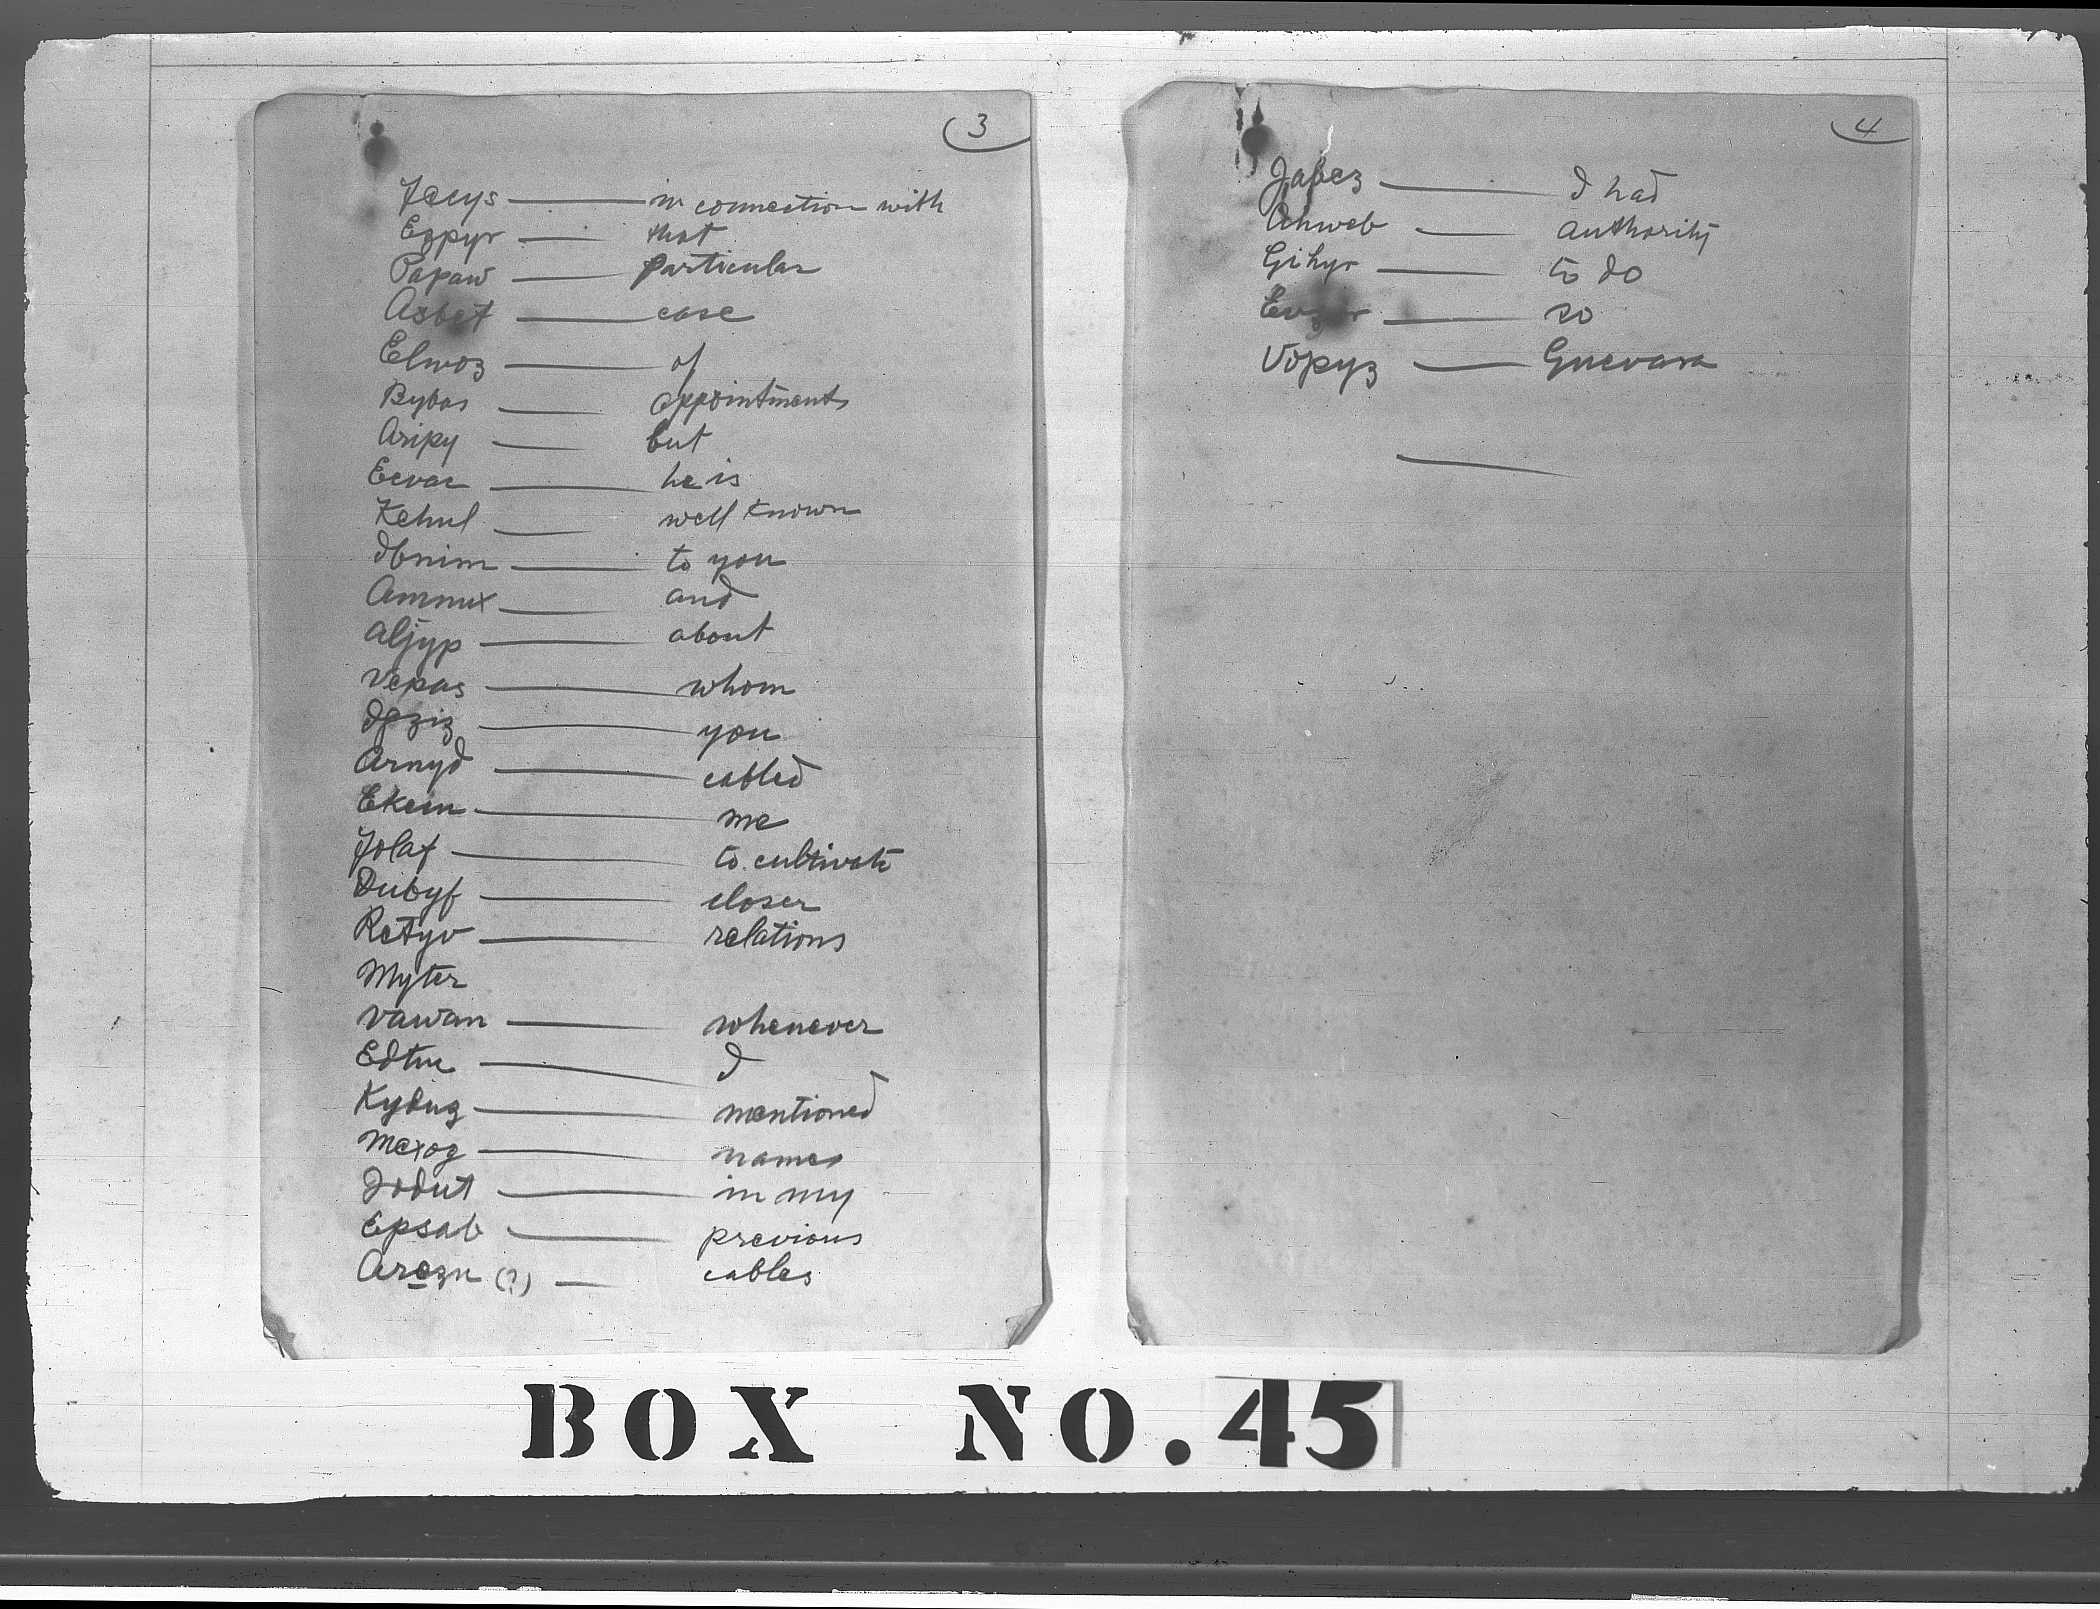 3
Jecys — in connection with
Ezpyr — that
Papaw — particular
Azbet — case
Elwoz — of
Bybas — appointments
Aripy — but
Eevac — he is
Kehul — well known
Ibnim — to you
Ammux — and
Aljyp — about
Vepas — whom
— you
Arnyd — cabled
Ekem — me
Jolaf — to cultivate
Dubyf — closer
Retyv — relations
Myter
Vawan — whenever
Edtu — I
Kydug — mentioned
Mexog — names
Jodut — in my
Epsab — previous
Arezu (?) — cables
4
Jabez — I had
Ahweb — authority
Gihyr — to do
— so
Vopyz — Guevara
BOX NO. 45